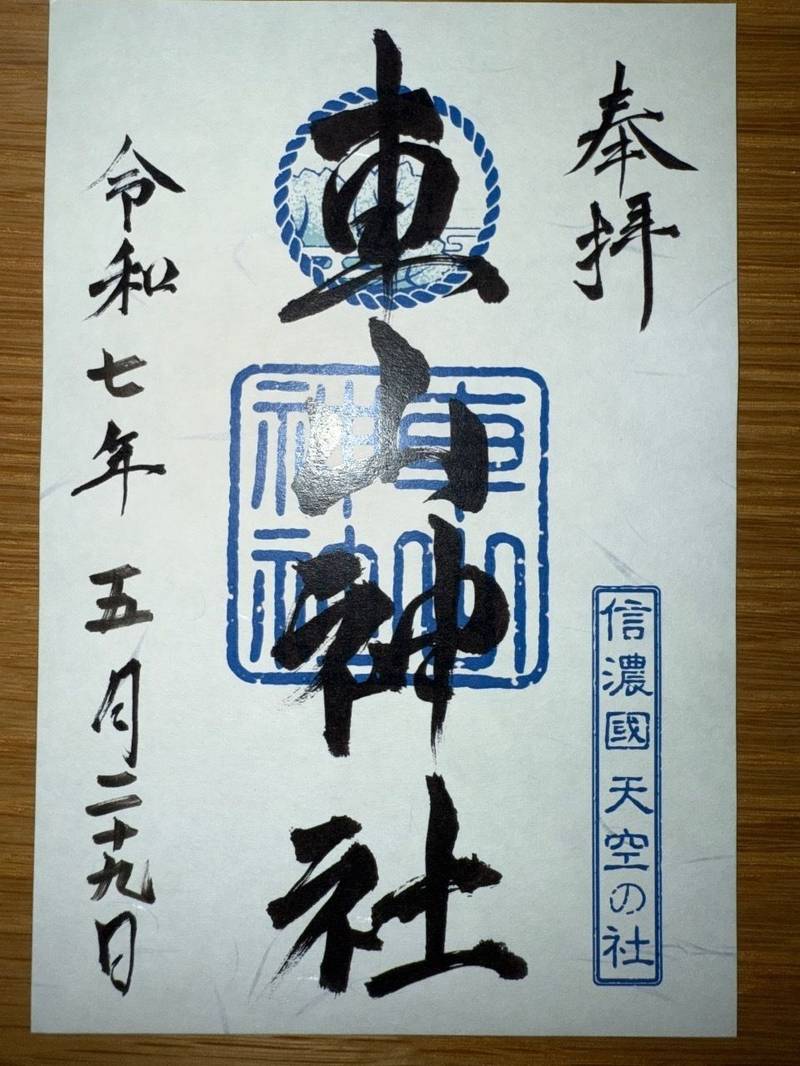 奉拝
信濃國 天空の社
車山神社
車山神社
令和七年 五月二十九日